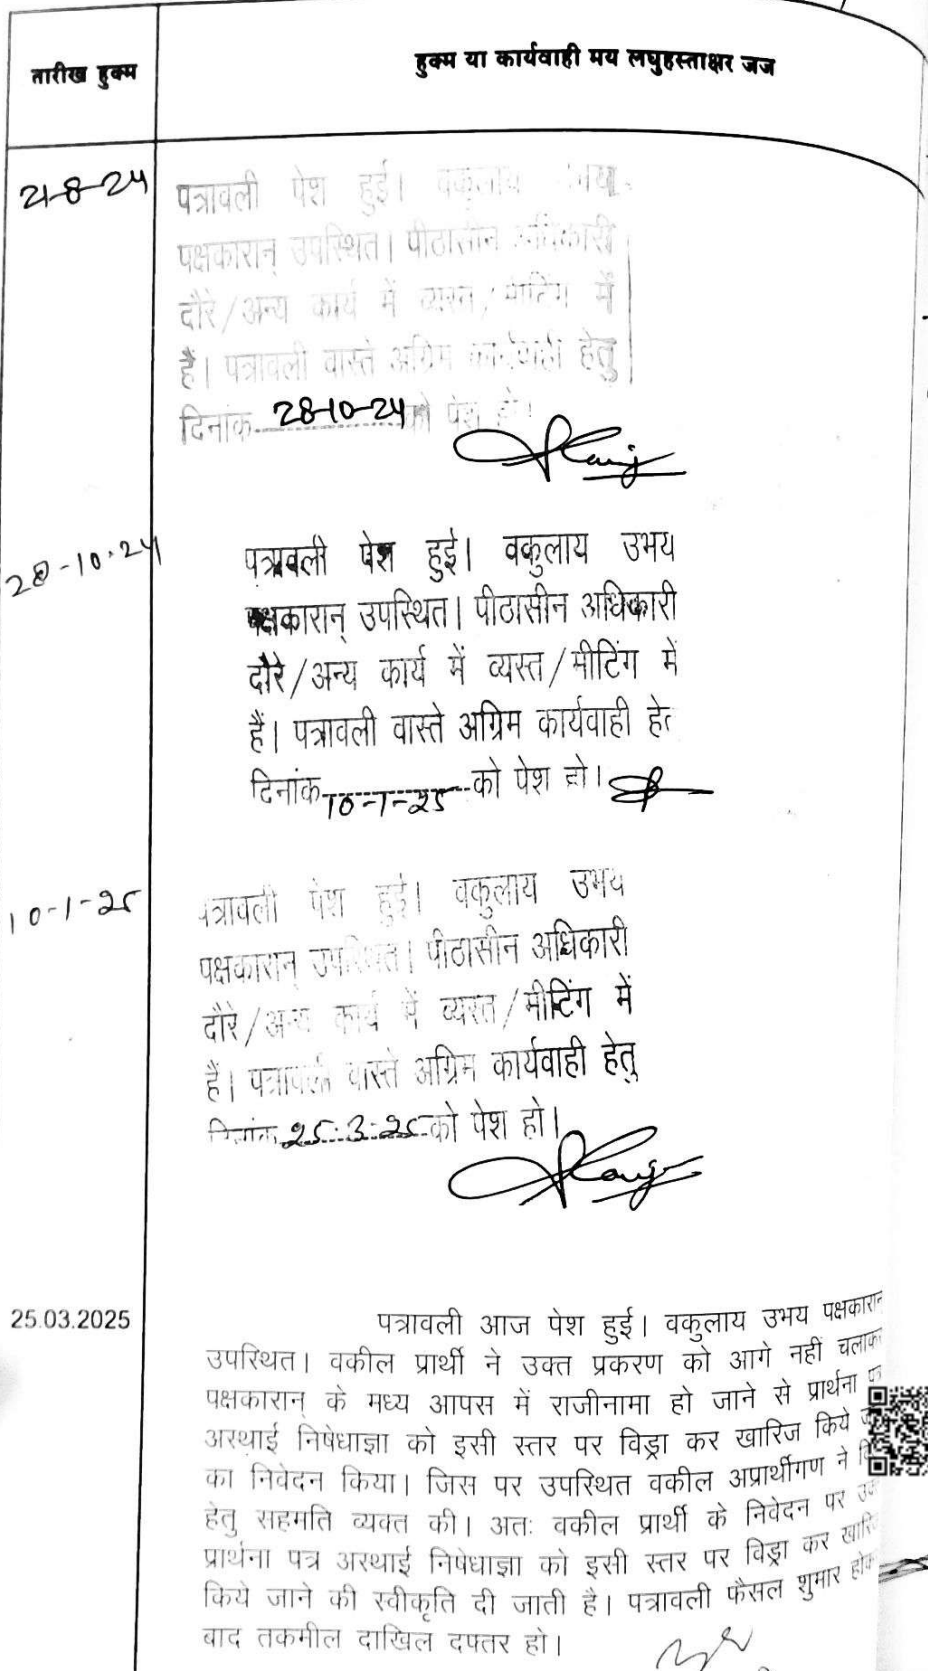 तारीख हुक्म
हुक्म या कार्यवाही मय लघुहस्ताक्षर जज
21-8-24
पत्रावली पेश हुई। वकुलाय उभय
पक्षकारान् उपस्थित। पीठासीन अधिकारी
दौरे/अन्य कार्य में व्यस्त/मीटिंग में
हैं। पत्रावली वास्ते अग्रिम कार्यवाही हेतु
दिनांक 28-10-24 को पेश हो।
28-10-24
पत्रावली पेश हुई। वकुलाय उभय
पक्षकारान् उपस्थित। पीठासीन अधिकारी
दौरे/अन्य कार्य में व्यस्त/मीटिंग में
हैं। पत्रावली वास्ते अग्रिम कार्यवाही
दिनांक 10-1-25 को पेश हो।
10-1-25
पत्रावली पेश हुई। वकुलाय उभय
पक्षकारान् उपस्थित। पीठासीन अधिकारी
दौरे/अन्य कार्य में व्यस्त/मीटिंग में
हैं। पत्रावली वास्ते अग्रिम कार्यवाही हेतु
दिनांक 25-3-25 को पेश हो।
25.03.2025
पत्रावली आज पेश हुई। वकुलाय उभय पक्षकारान्
उपस्थित। वकील प्रार्थी ने उक्त प्रकरण को आगे नहीं
पक्षकारान् के मध्य आपस में राजीनामा हो जाने से प्रार्थना
अस्थाई निषेधाज्ञा को इसी स्तर पर विड्रा कर खारिज किये
का निवेदन किया। जिस पर उपस्थित वकील अप्रार्थीगण ने
हेतु सहमति व्यक्त की। अतः वकील प्रार्थी के निवेदन पर
प्रार्थना पत्र अस्थाई निषेधाज्ञा को इसी स्तर पर विड्रा कर
किये जाने की स्वीकृति दी जाती है। पत्रावली फैसल शुमार
बाद तकमील दाखिल दफ्तर हो।